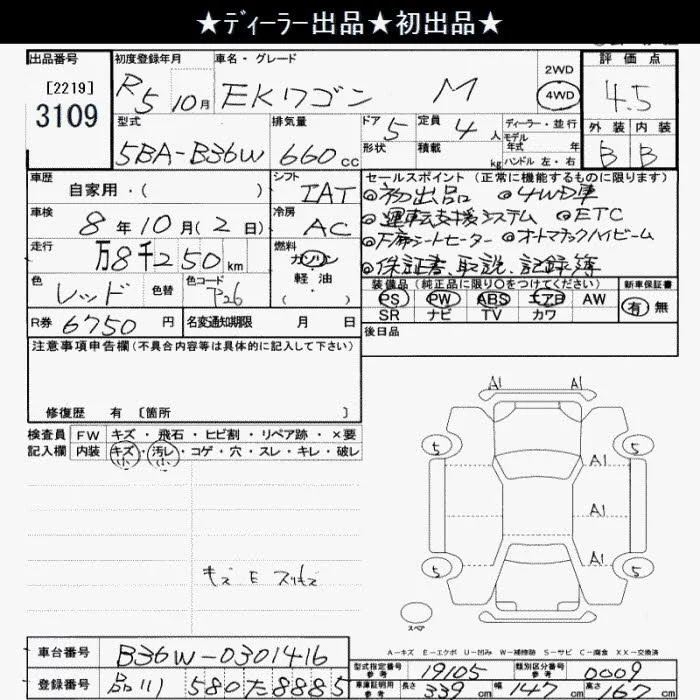 ★ディーラー出品★初出品★
出品番号 初度登録年月 車名・グレード 2WD 評価点
[2219] R5 10月 EKワゴン M 4WD 4.5
3109
型式 排気量 ドア 5 定員 4人 ディーラー・並行 外装 内装
5BA-B36W 660cc 形状 積載 kg モデル年式 年 ハンドル 左・右 B B
車歴 シフト セールスポイント(正常に機能するものに限ります)
自家用・( ) IAT ◎初出品 ◎4WD車
車検 8年10月(2日) 冷房 AC ◎運転支援システム ◎ETC
走行 万8千250km 燃料 ガソリン ◎オートマチックハイビーム
色 レッド 色替 色コード P26 軽油 ・( ) ◎保証書、取説、記録簿
装備品(純正品に限り○をつけてください) 新車保証書
PS PW ABS エアB AW 有 無
SR ナビ TV カワ
R券 6750円 名変通知期限 月 日 後日品
注意事項申告欄(不具合内容等は具体的に記入して下さい)
修復歴 有 〔箇所 〕
検査員 FW キズ・飛石・ヒビ割・リペア跡・×要
記入欄 内装 キズ・汚レ・コゲ・穴・スレ・キレ・破レ
小 小
A1 A1
5 5
A1
A1
A1
5 5
スペア
A-キズ E-エクボ U-凹み W-補修跡 S-サビ C-腐食 XX-交換済
車台番号 B36W-0301416
型式指定番号 参考 19105 類別区分番号 参考 0009
登録番号 品川 580 た 8885
車庫証明用 参考 長さ 339cm 幅 147cm 高さ 167cm